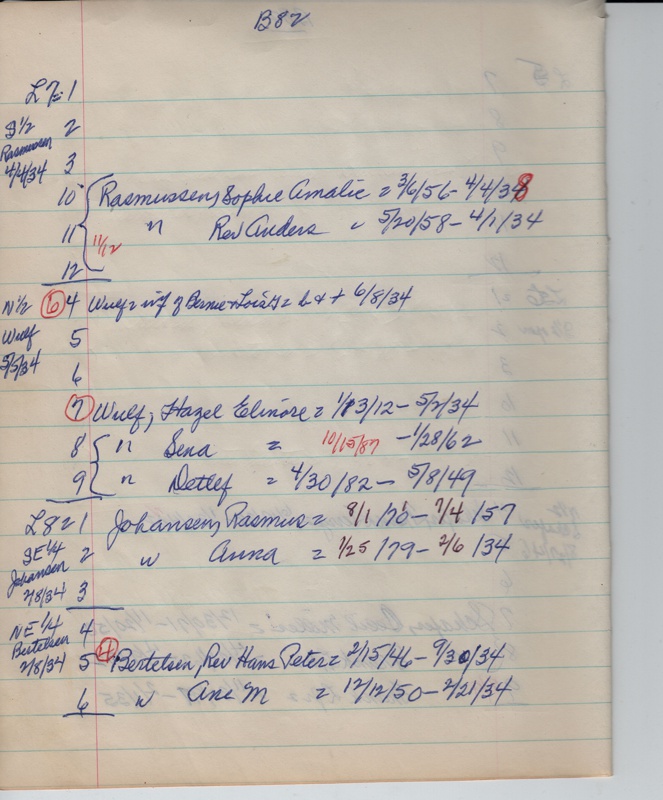 B82
L7=1
S 1/2 2
Rasmussen 3
4/4/34
10 Rasmussen, Sophie Amalie = 3/6/56 - 4/4/38
11 11/12 " Rev Anders " 5/20/58 - 4/1/34
12
N 1/2 6 4 Wulf = inf of Bernie + Lois = b & + 6/8/34
Wulf 5
5/5/34 6
7 Wulf, Hazel Elinore = 1/13/12 - 5/2/34
8 " Sena = 10/15/87 - 1/28/62
9 " Detlef = 4/30/82 - 5/8/49
L8=1 Johansen, Rasmus = 8/1/70 - 7/4/57
SE 1/4 2 " Anna = 1/25/79 - 2/6/34
Johansen
2/8/34 3
NE 1/4 4
Bertelsen
2/8/34 5 4 Bertelsen, Rev Hans Peter = 2/15/46 - 9/30/34
6 " Ane M = 12/12/50 - 2/21/34